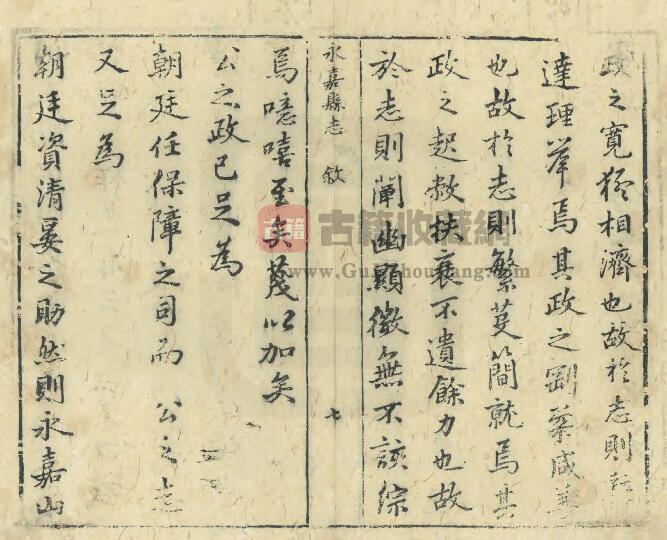 政之寬猛相濟也故於志則
達理舉焉其政之剛柔咸
也故於志則繁芟簡就焉其
政之起敝扶衰不遺餘力也故
於志則闡幽顯微無不該綜
永嘉縣志 敘 七
焉噫嘻至矣蔑以加矣
公之政已足為
朝廷任保障之司而 公之志
又足為
朝廷資清晏之助然則永嘉山
古籍 古籍收藏網
www.GujiShouCang.com